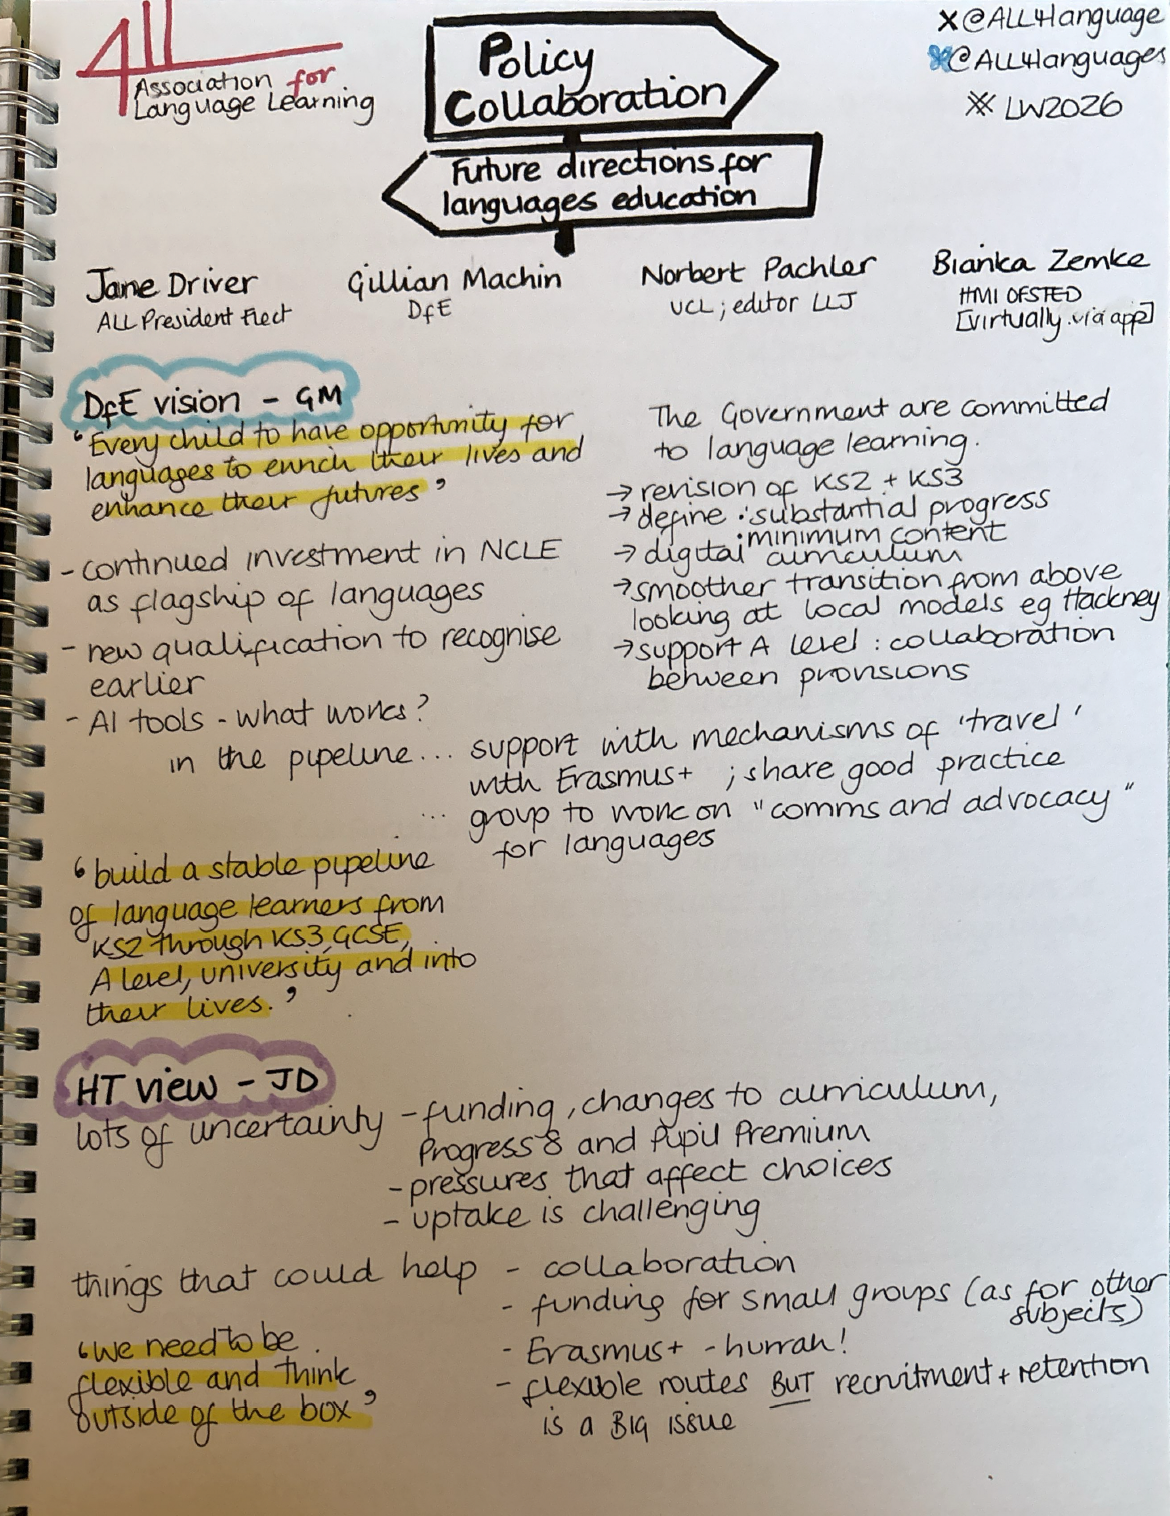 ALL
Association for
Language Learning
Policy
Collaboration
Future directions for
languages education
X @ALL4language
@ALL4languages
LW2026
Jane Driver
ALL President Elect
Gillian Machin
DfE
Norbert Pachler
UCL; editor LLJ
Bianka Zemke
HMI OFSTED
[virtually via app]
DfE vision - GM
'Every child to have opportunity for
languages to enrich their lives and
enhance their futures'
- continued investment in NCLE
as flagship of languages
- new qualification to recognise
earlier
- AI tools - what works?
The Government are committed
to language learning.
→ revision of KS2 + KS3
→ define : substantial progress
: minimum content
→ digital curriculum
→ smoother transition from above
looking at local models eg Hackney
→ support A level : collaboration
between provisions
in the pipeline... support with mechanisms of 'travel'
with Erasmus+ ; share good practice
... group to work on "comms and advocacy"
for languages
'build a stable pipeline
of language learners from
KS2 through KS3, GCSE,
A level, university and into
their lives.'
HT view - JD
lots of uncertainty - funding, changes to curriculum,
Progress 8 and Pupil Premium
- pressures that affect choices
- uptake is challenging
things that could help - collaboration
- funding for small groups (as for other
subjects)
- Erasmus+ - hurrah!
- flexible routes BUT recruitment + retention
is a BIG issue
'we need to be
flexible and think
outside of the box'